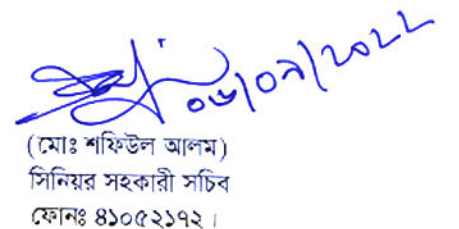 ০৬/০৯/২০২২
(মোঃ শফিউল আলম)
সিনিয়র সহকারী সচিব
ফোনঃ ৪১০৫২১৭২।